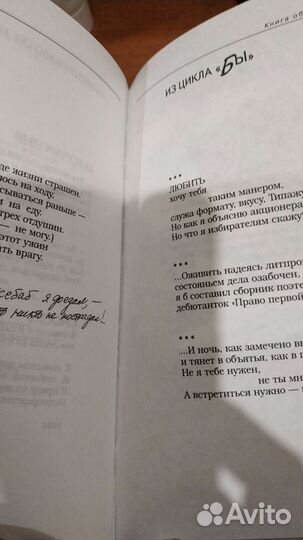 де жизни страшен.
юсь на ходу.
сываться раньше –
м на еду.
трех отдушин.
– не могу.)
этот ужин
ать врагу.
я доедал, –
никто не пострадал!
Книга об
ИЗ ЦИКЛА «БЫ»
•••
ЛЮБИТЬ
хочу тебя
таким манером,
служа формату, вкусу. Типажу
Но как я объясню акционера
Но что я избирателям скажу
•••
...Оживить надеясь литпром
состояньем дела озабочен,
я б составил сборник поэте
дебютанток «Право первой
•••
...И ночь, как замечено вы
и тянет в объятья, как в п
Не я тебе нужен,
не ты мн
А встретиться нужно –
Avito